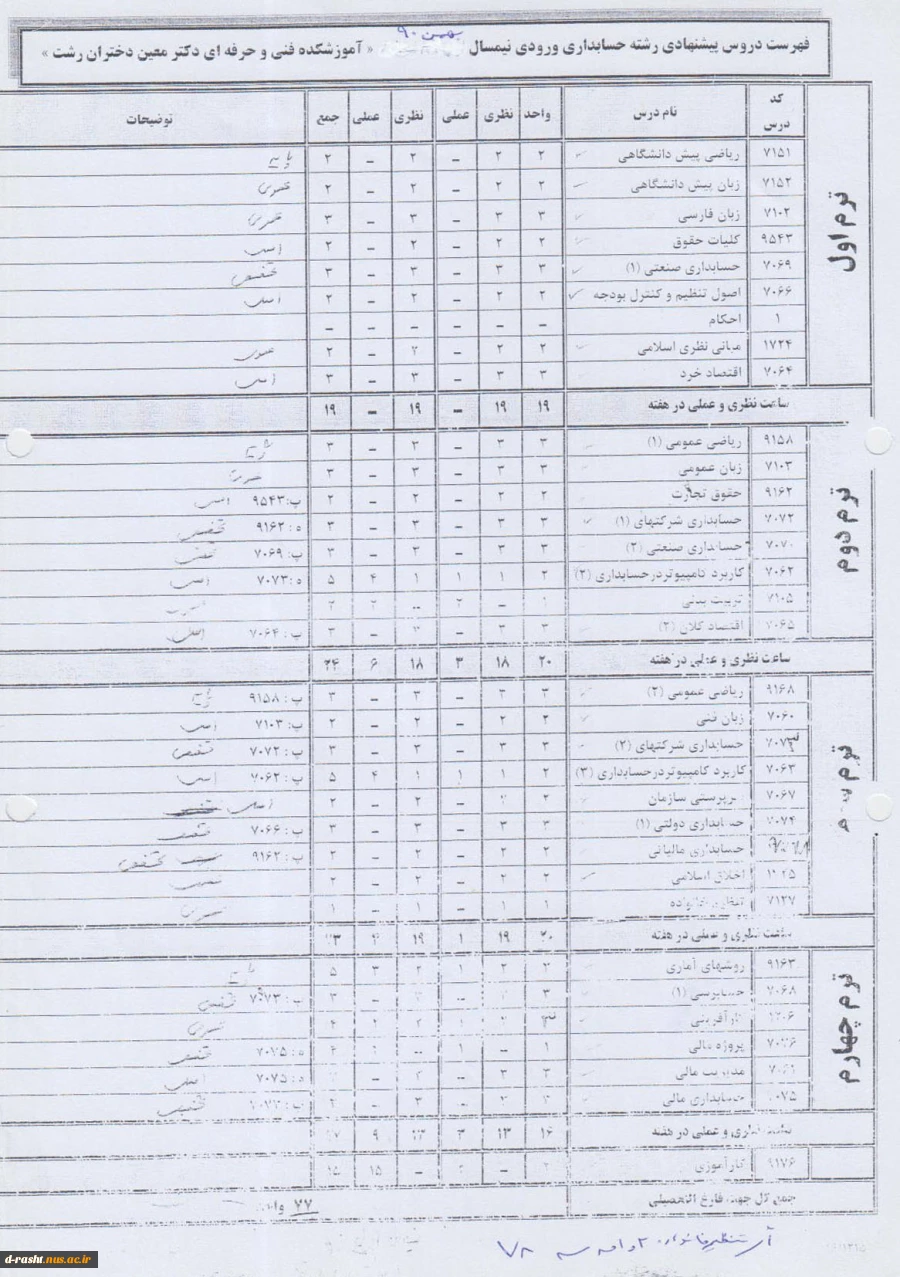 بهمن ۹۰
فهرست دروس پیشنهادی رشته حسابداری ورودی نیمسال « آموزشکده فنی و حرفه ای دکتر معین دختران رشت »
کد درس نام درس واحد نظری عملی نظری عملی جمع توضیحات
ترم اول
۷۱۵۱ ریاضی پیش دانشگاهی ۲ ۲ – ۲ – ۲ پایه
۷۱۵۲ زبان پیش دانشگاهی ۲ ۲ – ۲ – ۲ عمومی
۷۱۰۲ زبان فارسی ۳ ۳ – ۳ – ۳ عمومی
۹۵۴۳ کلیات حقوق ۲ ۲ – ۲ – ۲ اصلی
۷۰۶۹ حسابداری صنعتی (۱) ۳ ۳ – ۳ – ۳ تخصصی
۷۰۶۶ اصول تنظیم و کنترل بودجه ۲ ۲ – ۲ – ۲ اصلی
۱ احکام – – – – – –
۱۷۲۴ مبانی نظری اسلامی ۲ ۲ – ۲ – ۲ عمومی
۷۰۶۴ اقتصاد خرد ۳ ۳ – ۳ – ۳ اصلی
ساعت نظری و عملی در هفته ۱۹ ۱۹ – ۱۹ – ۱۹
ترم دوم
۹۱۵۸ ریاضی عمومی (۱) ۳ ۳ – ۳ – ۳ پایه
۷۱۰۳ زبان عمومی ۳ ۳ – ۳ – ۳ عمومی
۹۱۶۲ حقوق تجارت ۲ ۲ – ۲ – ۲ پ: ۹۵۴۳ اصلی
۷۰۷۲ حسابداری شرکتهای (۱) ۳ ۳ – ۳ – ۳ ه: ۹۱۶۲ تخصصی
۷۰۷۰ حسابداری صنعتی (۲) ۳ ۳ – ۳ – ۳ پ: ۷۰۶۹ تخصصی
۷۰۶۲ کاربرد کامپیوتر در حسابداری (۲) ۲ ۱ ۱ ۱ ۴ ۵ ه: ۷۰۷۳ اصلی
۷۱۰۵ تربیت بدنی ۱ – ۲ – ۲ ۲
۷۰۶۵ اقتصاد کلان (۲) ۳ ۳ – ۳ – ۳ پ: ۷۰۶۴ اصلی
ساعت نظری و عملی در هفته ۲۰ ۱۸ ۳ ۱۸ ۶ ۲۴
ترم سوم
۹۱۶۸ ریاضی عمومی (۲) ۳ ۳ – ۳ – ۳ پ: ۹۱۵۸ پایه
۷۰۶۰ زبان فنی ۲ ۲ – ۲ – ۲ پ: ۷۱۰۳ اصلی
۷۰۷۳ حسابداری شرکتهای (۲) ۳ ۳ – ۳ – ۳ پ: ۷۰۷۲ تخصصی
۷۰۶۳ کاربرد کامپیوتر در حسابداری (۳) ۲ ۱ ۱ ۱ ۴ ۵ پ: ۷۰۶۲ اصلی
۷۰۶۷ سرپرستی سازمان ۲ ۲ – ۲ – ۲ اصلی
۷۰۷۴ حسابداری دولتی (۱) ۳ ۳ – ۳ – ۳ پ: ۷۰۶۶ تخصصی
حسابداری مالیاتی ۲ ۲ – ۲ – ۲ پ: ۹۱۶۲ تخصصی
اخلاق اسلامی ۲ ۲ – ۲ – ۲ عمومی
۷۱۲۷ تنظیم خانواده ۱ ۱ – ۱ – ۱ عمومی
ساعت نظری و عملی در هفته ۲۰ ۱۹ ۱ ۱۹ ۴ ۲۳
ترم چهارم
۹۱۶۳ روشهای آماری ۳ ۲ ۱ ۲ ۳ ۵ پایه
۷۰۶۸ حسابرسی (۱) ۳ – – ۳ پ: ۷۰۷۳ تخصصی
کارآفرینی عمومی
پروژه مالی ۱ – ۱ ه: ۷۰۷۵ تخصصی
مدیریت مالی ۳ – – ه: ۷۰۷۵ اصلی
حسابداری مالی – ۳ – تخصصی
ساعت نظری و عملی در هفته ۱۶ ۱۳ ۳ ۱۳ ۹
۹۱۷۶ کارآموزی ۲ – ۲ – ۱۵ ۱۵
جمع کل جهت فارغ التحصیلی ۷۷ واحد
تنظیم خانواده ۲ واحد ۷۸
d-rasht.nus.ac.ir